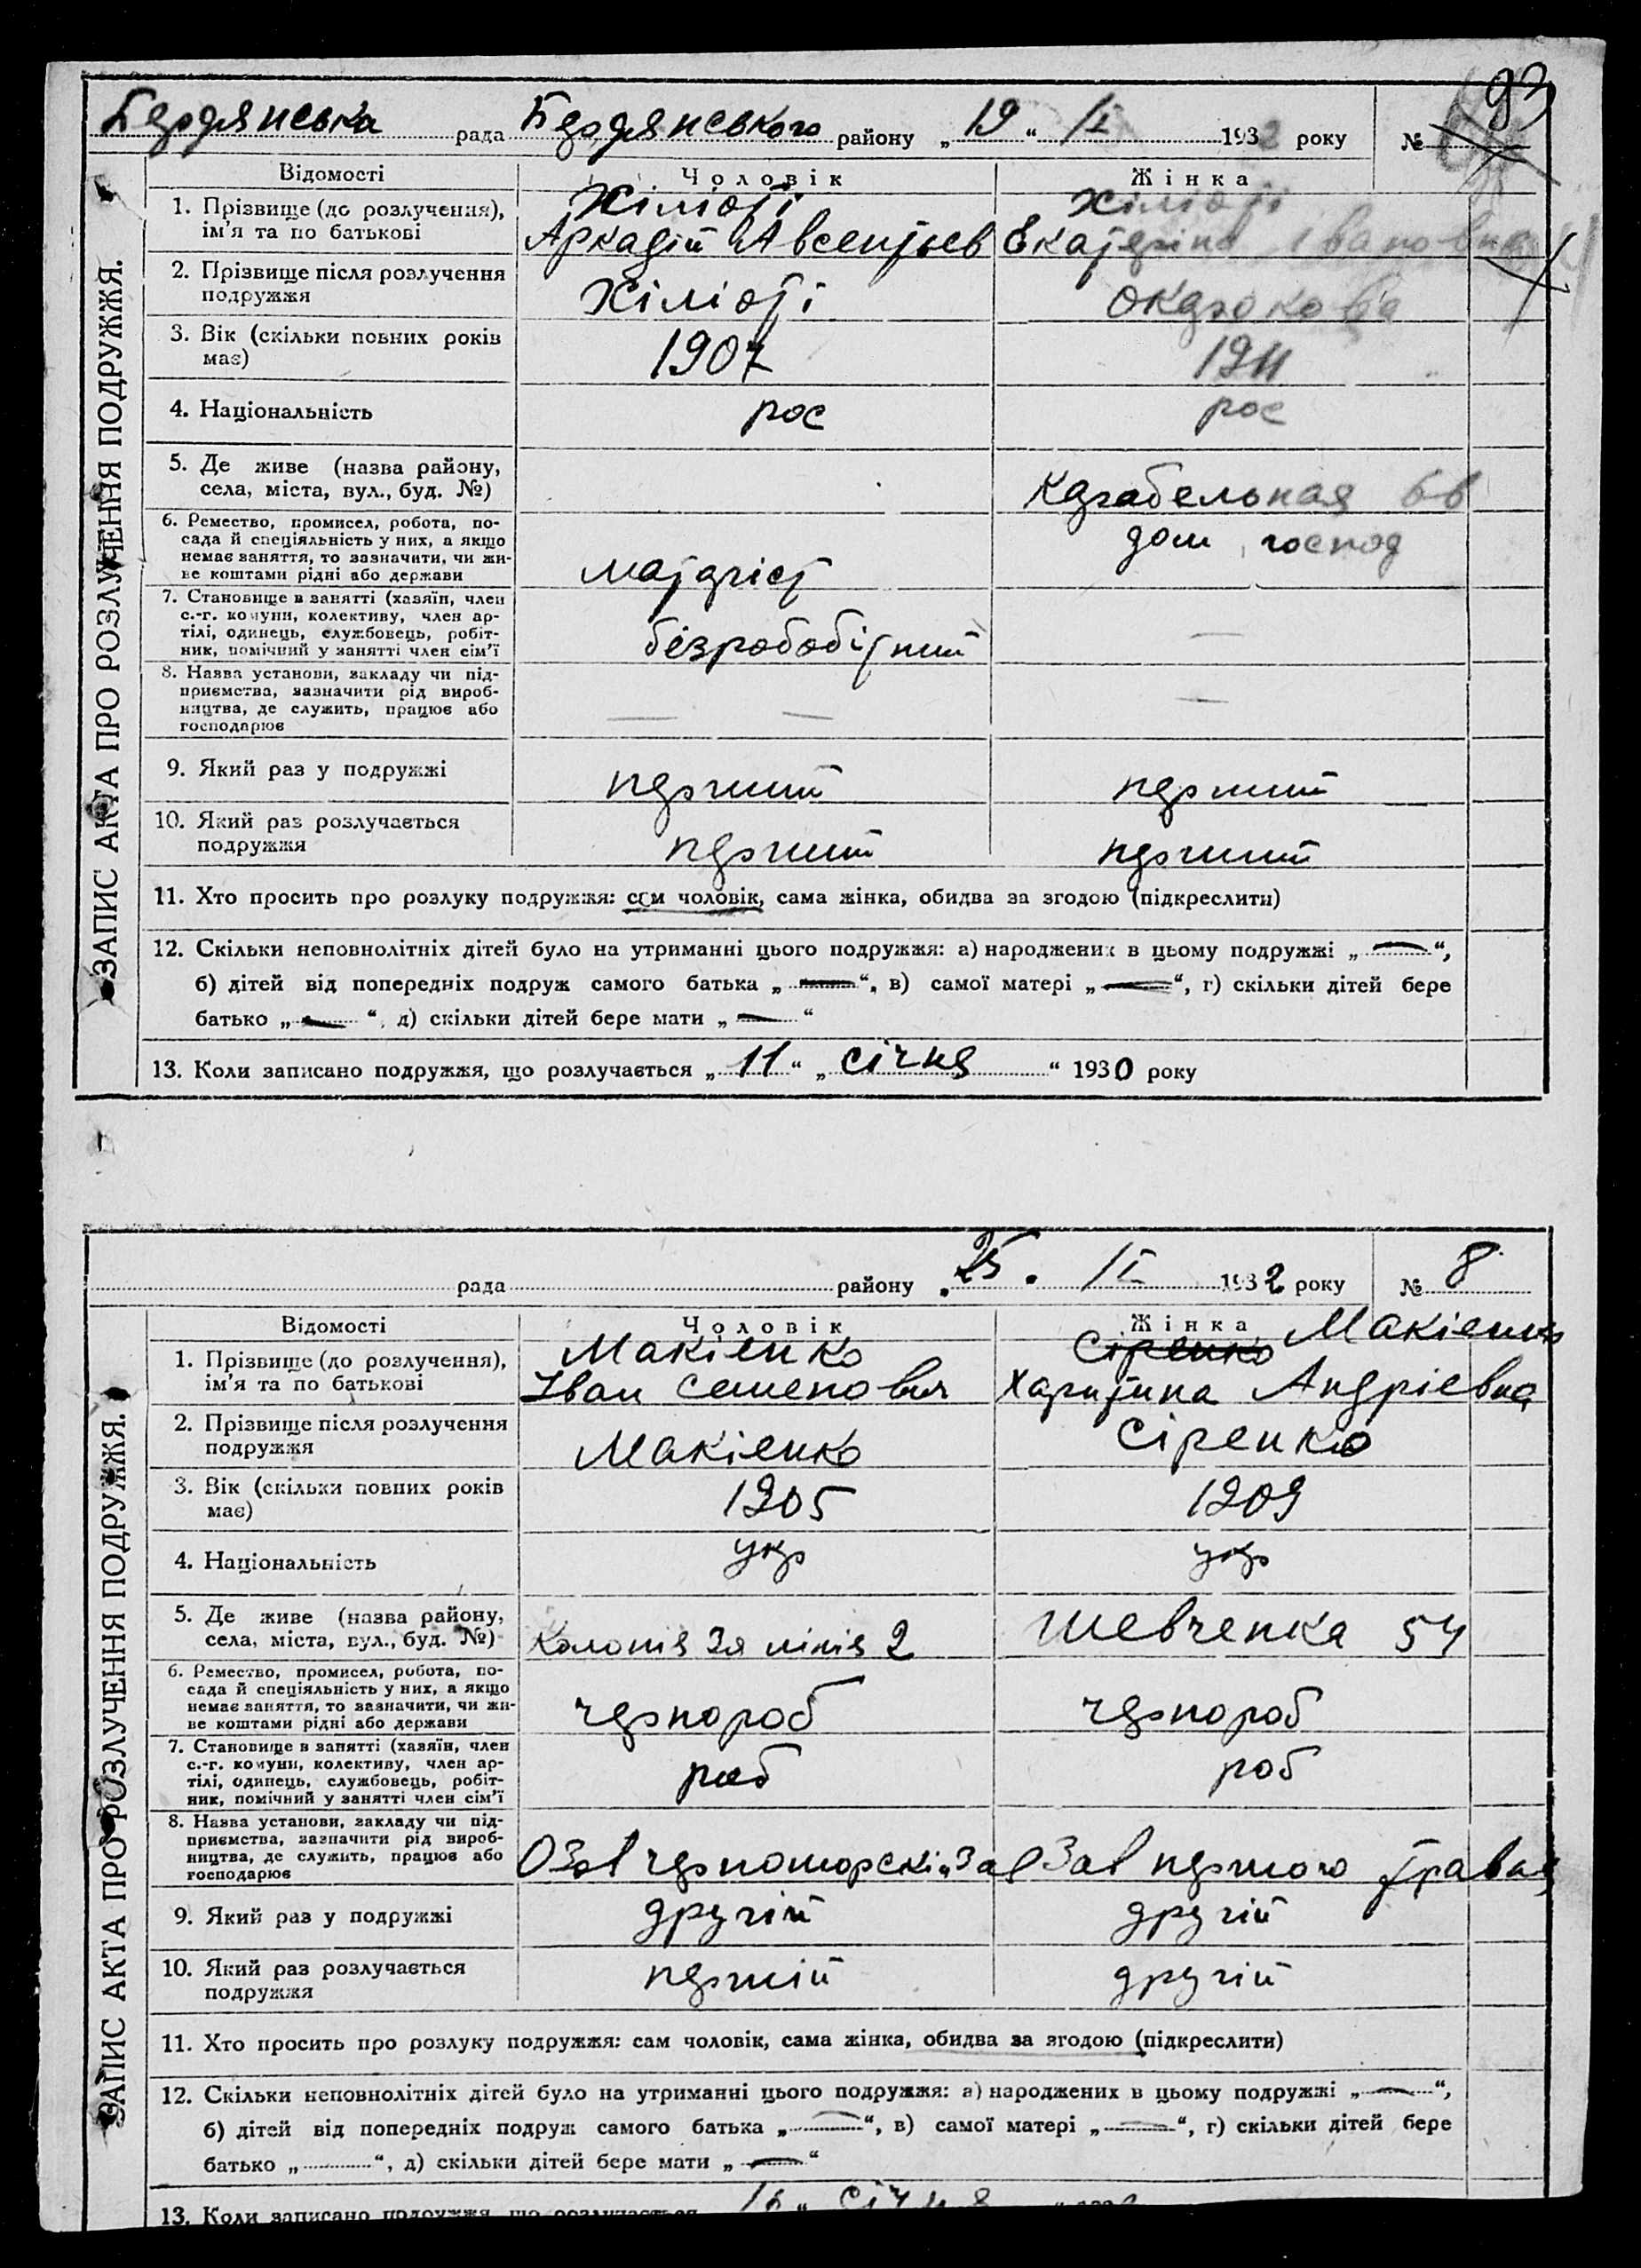 93
Бердянська рада Бердянського району „ 19 “ II 1932 року №
ЗАПИС АКТА ПРО РОЗЛУЧЕННЯ ПОДРУЖЖЯ.
Відомості Чоловік Жінка
1. Прізвище (до розлучення), ім’я та по батькові
Хіліоті Хіліоті
Аркадій Авсентьев Екатеріна Івановна
2. Прізвище після розлучення подружжя
Хіліоті
3. Вік (скільки повних років має)
1907 1911
4. Національність рос рос
5. Де живе (назва району, села, міста, вул., буд. №)
Карабельная
6. Ремество, промисел, робота, по-
сада й спеціяльність у них, а якщо
немає заняття, то зазначити, чи жи-
ве коштами рідні або держави
дом господ
матрієт
7. Становище в занятті (хазяїн, член
с.-г. комуни, колективу, член ар-
тілі, одинець, службовець, робіт-
ник, помічний у занятті член сім’ї
безрободітний —
8. Назва установи, закладу чи під-
приємства, зазначити рід вироб-
ництва, де служить, працює або
господарює
— — —
9. Який раз у подружжі перший перший
10. Який раз розлучається подружжя
перший перший
11. Хто просить про розлуку подружжя: сам чоловік, сама жінка, обидва за згодою (підкреслити)
12. Скільки неповнолітніх дітей було на утриманні цього подружжя: а) народжених в цьому подружжі „ — “,
б) дітей від попередніх подруж самого батька „ — “, в) самої матері „ — “, г) скільки дітей бере
батько „ — “, д) скільки дітей бере мати „ — “
13. Коли записано подружжя, що розлучається „ 11 “ „ січня “ 1930 року
рада району 25. II 1932 року № 8
ЗАПИС АКТА ПРО РОЗЛУЧЕННЯ ПОДРУЖЖЯ.
Відомості Чоловік Жінка
1. Прізвище (до розлучення), ім’я та по батькові
Макіенко Сіренко Макіенко
Іван Семенович Харитина Андріевна
2. Прізвище після розлучення подружжя
Макіенко Сіренко
3. Вік (скільки повних років має)
1905 1909
4. Національність укр укр
5. Де живе (назва району, села, міста, вул., буд. №)
Колонія 3я лінія 2 Шевченка 54
6. Ремество, промисел, робота, по-
сада й спеціяльність у них, а якщо
немає заняття, то зазначити, чи жи-
ве коштами рідні або держави
чернороб чернороб
7. Становище в занятті (хазяїн, член
с.-г. комуни, колективу, член ар-
тілі, одинець, службовець, робіт-
ник, помічний у занятті член сім’ї
роб роб
8. Назва установи, закладу чи під-
приємства, зазначити рід вироб-
ництва, де служить, працює або
господарює
Зав першого травня
9. Який раз у подружжі другій другій
10. Який раз розлучається подружжя
першій другій
11. Хто просить про розлуку подружжя: сам чоловік, сама жінка, обидва за згодою (підкреслити)
12. Скільки неповнолітніх дітей було на утриманні цього подружжя: а) народжених в цьому подружжі „ — “,
б) дітей від попередніх подруж самого батька „ — “, в) самої матері „ — “, г) скільки дітей бере
батько „ “, д) скільки дітей бере мати „ — “
13. Коли записано подружжя, що розлучається 16 „ січня